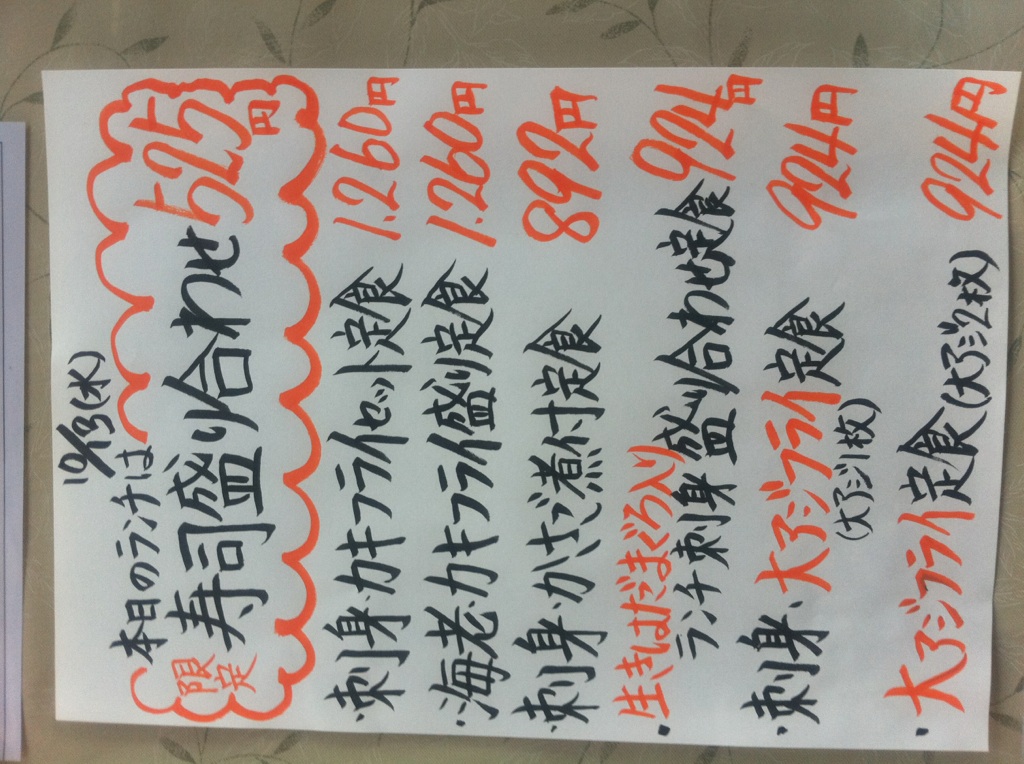 10/3(水)
本日のランチは
限定
寿司盛り合わせ 525円
・刺身・カキフライセット定食 1.260円
・海老・カキフライ盛り定食 1.260円
・刺身・かさご煮付定食 892円
・生きはだまぐろ入り
ランチ刺身盛り合わせ定食 924円
・刺身、大アジフライ定食 924円
(大アジ1枚)
・大アジフライ定食(大アジ2枚) 924円